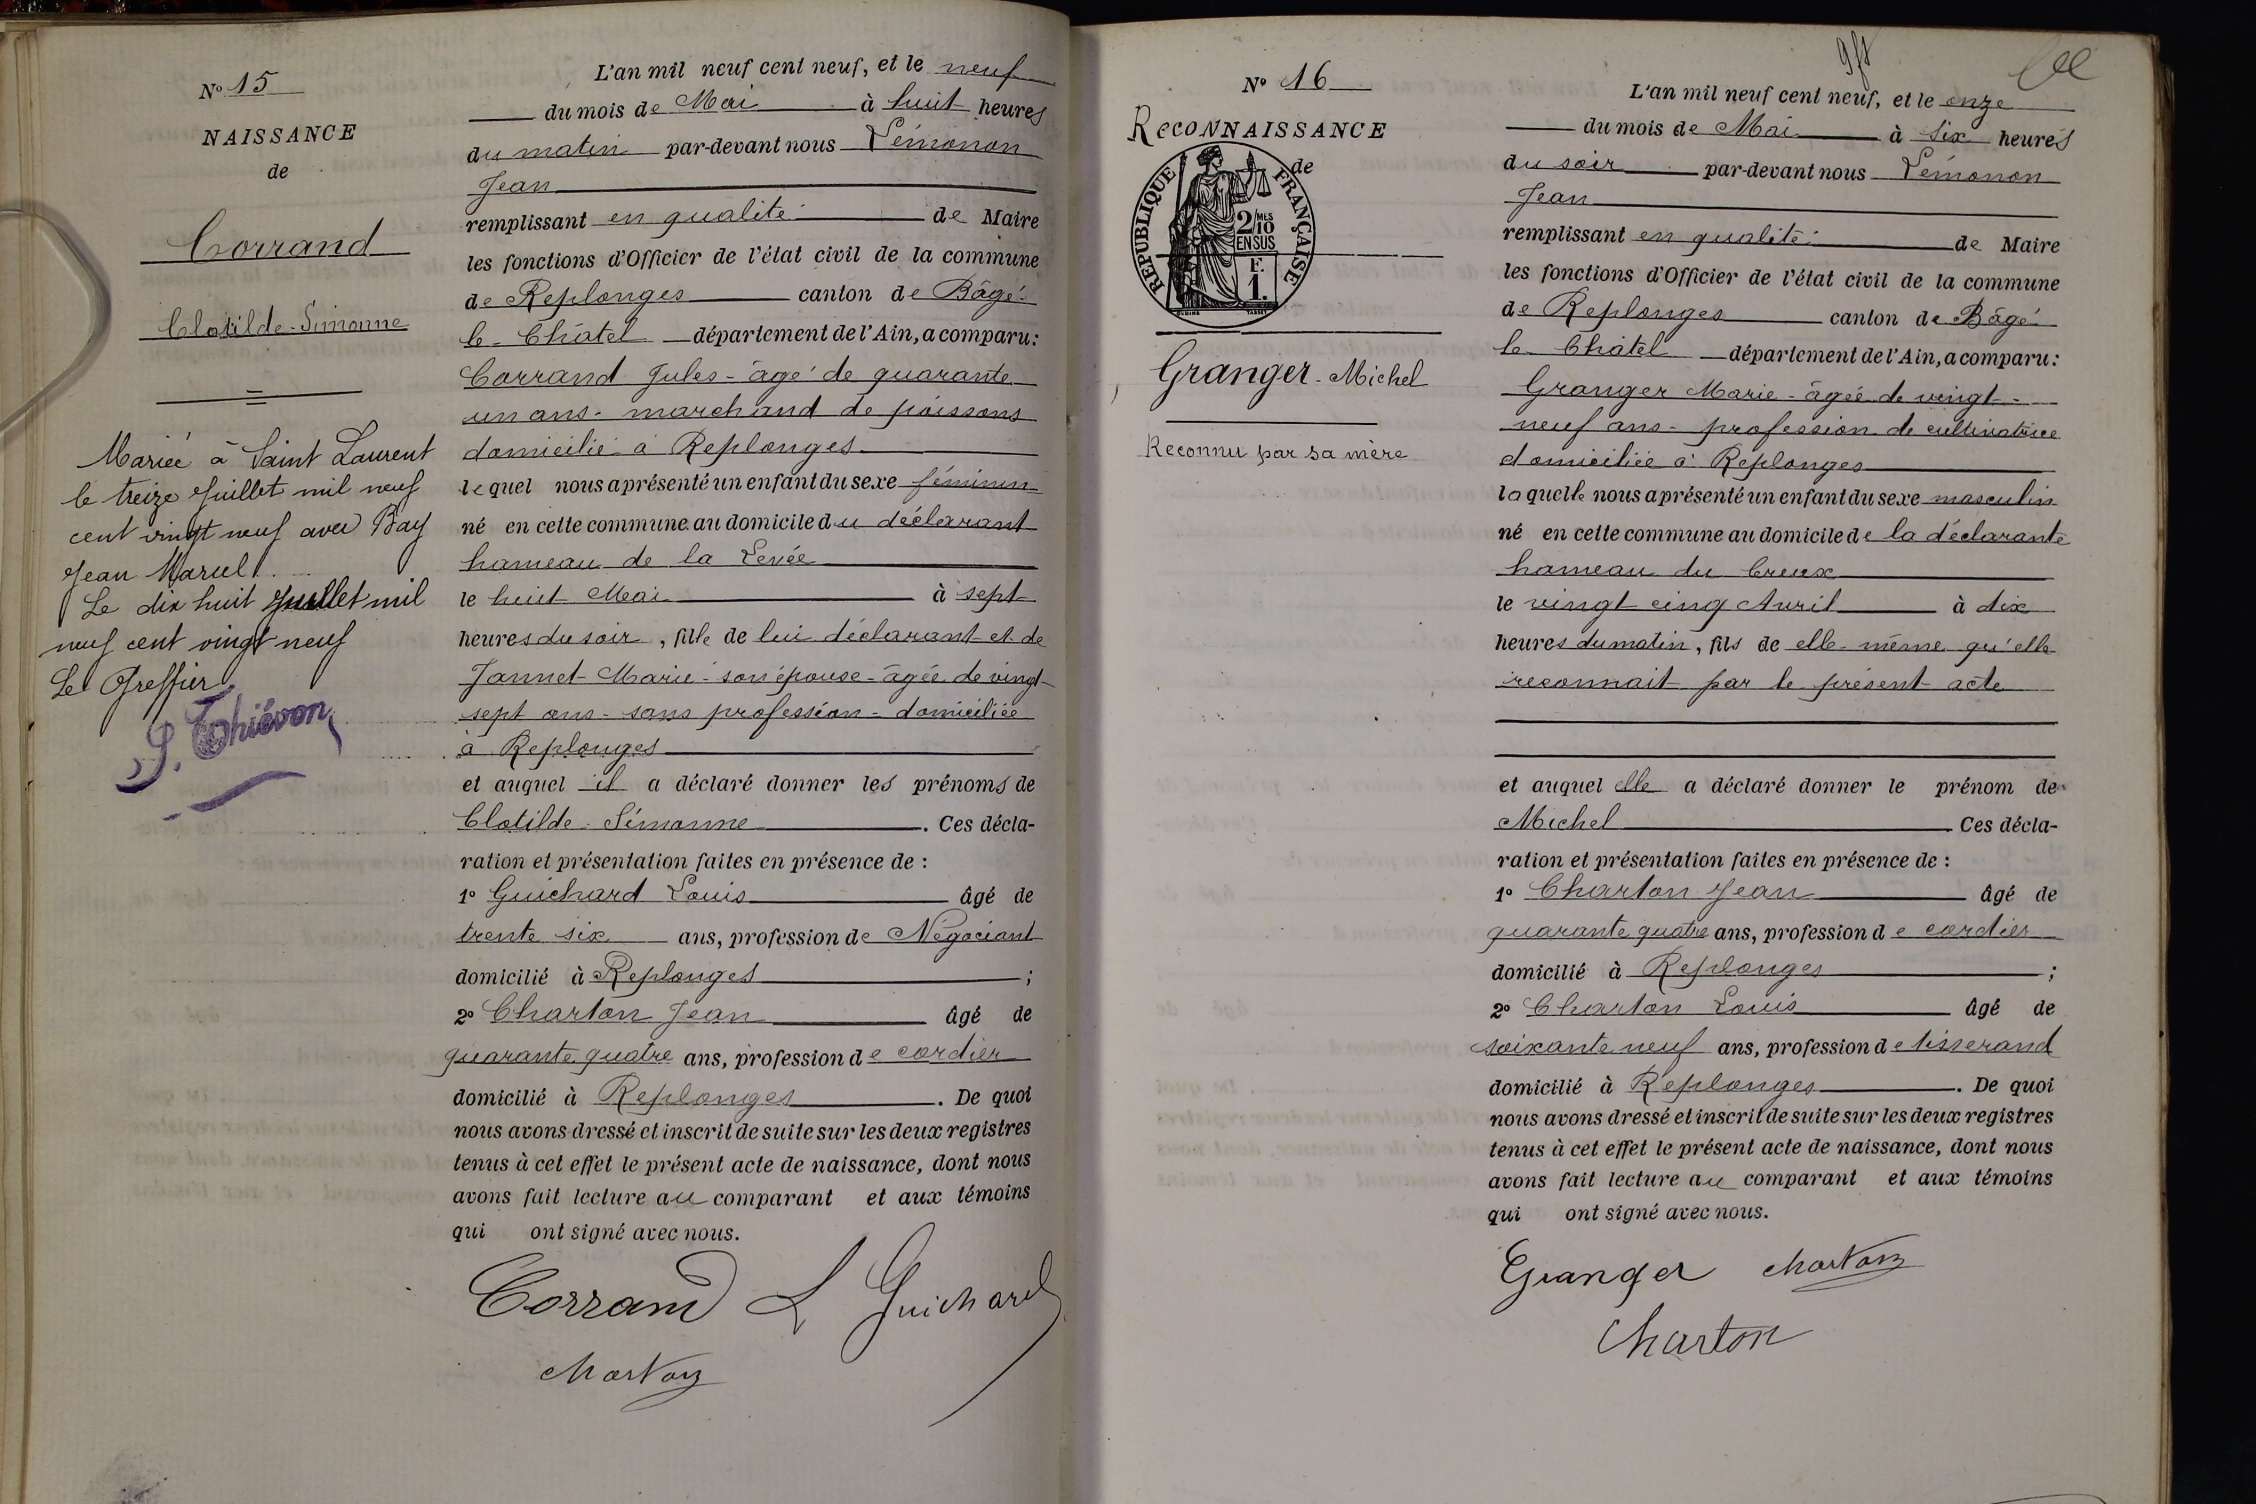 Nº 15
NAISSANCE
de
Corrand
Clotilde-Simonne
Mariée à Saint Laurent
le treize Juillet mil neuf
cent vingt neuf avec Bay
Jean Marcel.
Le dix huit Juillet mil
neuf cent vingt neuf
Le Greffier
Thiévon
L'an mil neuf cent neuf, et le neuf
du mois de Mai à huit heures
du matin par-devant nous Lémonon
Jean
remplissant en qualité de Maire
les fonctions d'Officier de l'état civil de la commune
de Replonges canton de Bâgé-
le-Châtel département de l'Ain, a comparu:
Corrand Jules - âgé de quarante
un ans - marchand de poissons
domicilié à Replonges
lequel nous a présenté un enfant du sexe féminin
né en cette commune au domicile du déclarant
hameau de la Levée
le huit Mai à sept
heures du soir, fille de lui déclarant et de
Jannet Marie - son épouse - âgée de vingt
sept ans - sans profession - domiciliée
à Replonges
et auquel il a déclaré donner les prénoms de
Clotilde-Simonne. Ces décla-
ration et présentation faites en présence de :
1º Guichard Louis âgé de
trente six ans, profession de Négociant
domicilié à Replonges ;
2º Charton Jean âgé de
quarante quatre ans, profession de cordier
domicilié à Replonges. De quoi
nous avons dressé et inscrit de suite sur les deux registres
tenus à cet effet le présent acte de naissance, dont nous
avons fait lecture au comparant et aux témoins
qui ont signé avec nous.
Corrand L Guichard
Charton
Nº 16
RECONNAISSANCE
de
REPUBLIQUE FRANÇAISE
2/10 MES
EN SUS
F.
1.
Granger-Michel
Reconnu par sa mère
L'an mil neuf cent neuf, et le onze
du mois de Mai à six heures
du soir par-devant nous Lémonon
Jean
remplissant en qualité de Maire
les fonctions d'Officier de l'état civil de la commune
de Replonges canton de Bâgé
le Châtel département de l'Ain, a comparu:
Granger Marie - âgée de vingt-
neuf ans - profession de cultivatrice
domiciliée à Replonges
laquelle nous a présenté un enfant du sexe masculin
né en cette commune au domicile de la déclarante
hameau du Creux
le vingt cinq Avril à dix
heures du matin, fils de elle-même qu'elle
reconnait par le présent acte
et auquel elle a déclaré donner le prénom de
Michel. Ces décla-
ration et présentation faites en présence de :
1º Charton Jean âgé de
quarante quatre ans, profession de cordier
domicilié à Replonges ;
2º Charton Louis âgé de
soixante neuf ans, profession de tisserand
domicilié à Replonges. De quoi
nous avons dressé et inscrit de suite sur les deux registres
tenus à cet effet le présent acte de naissance, dont nous
avons fait lecture au comparant et aux témoins
qui ont signé avec nous.
Granger Charton
Charton